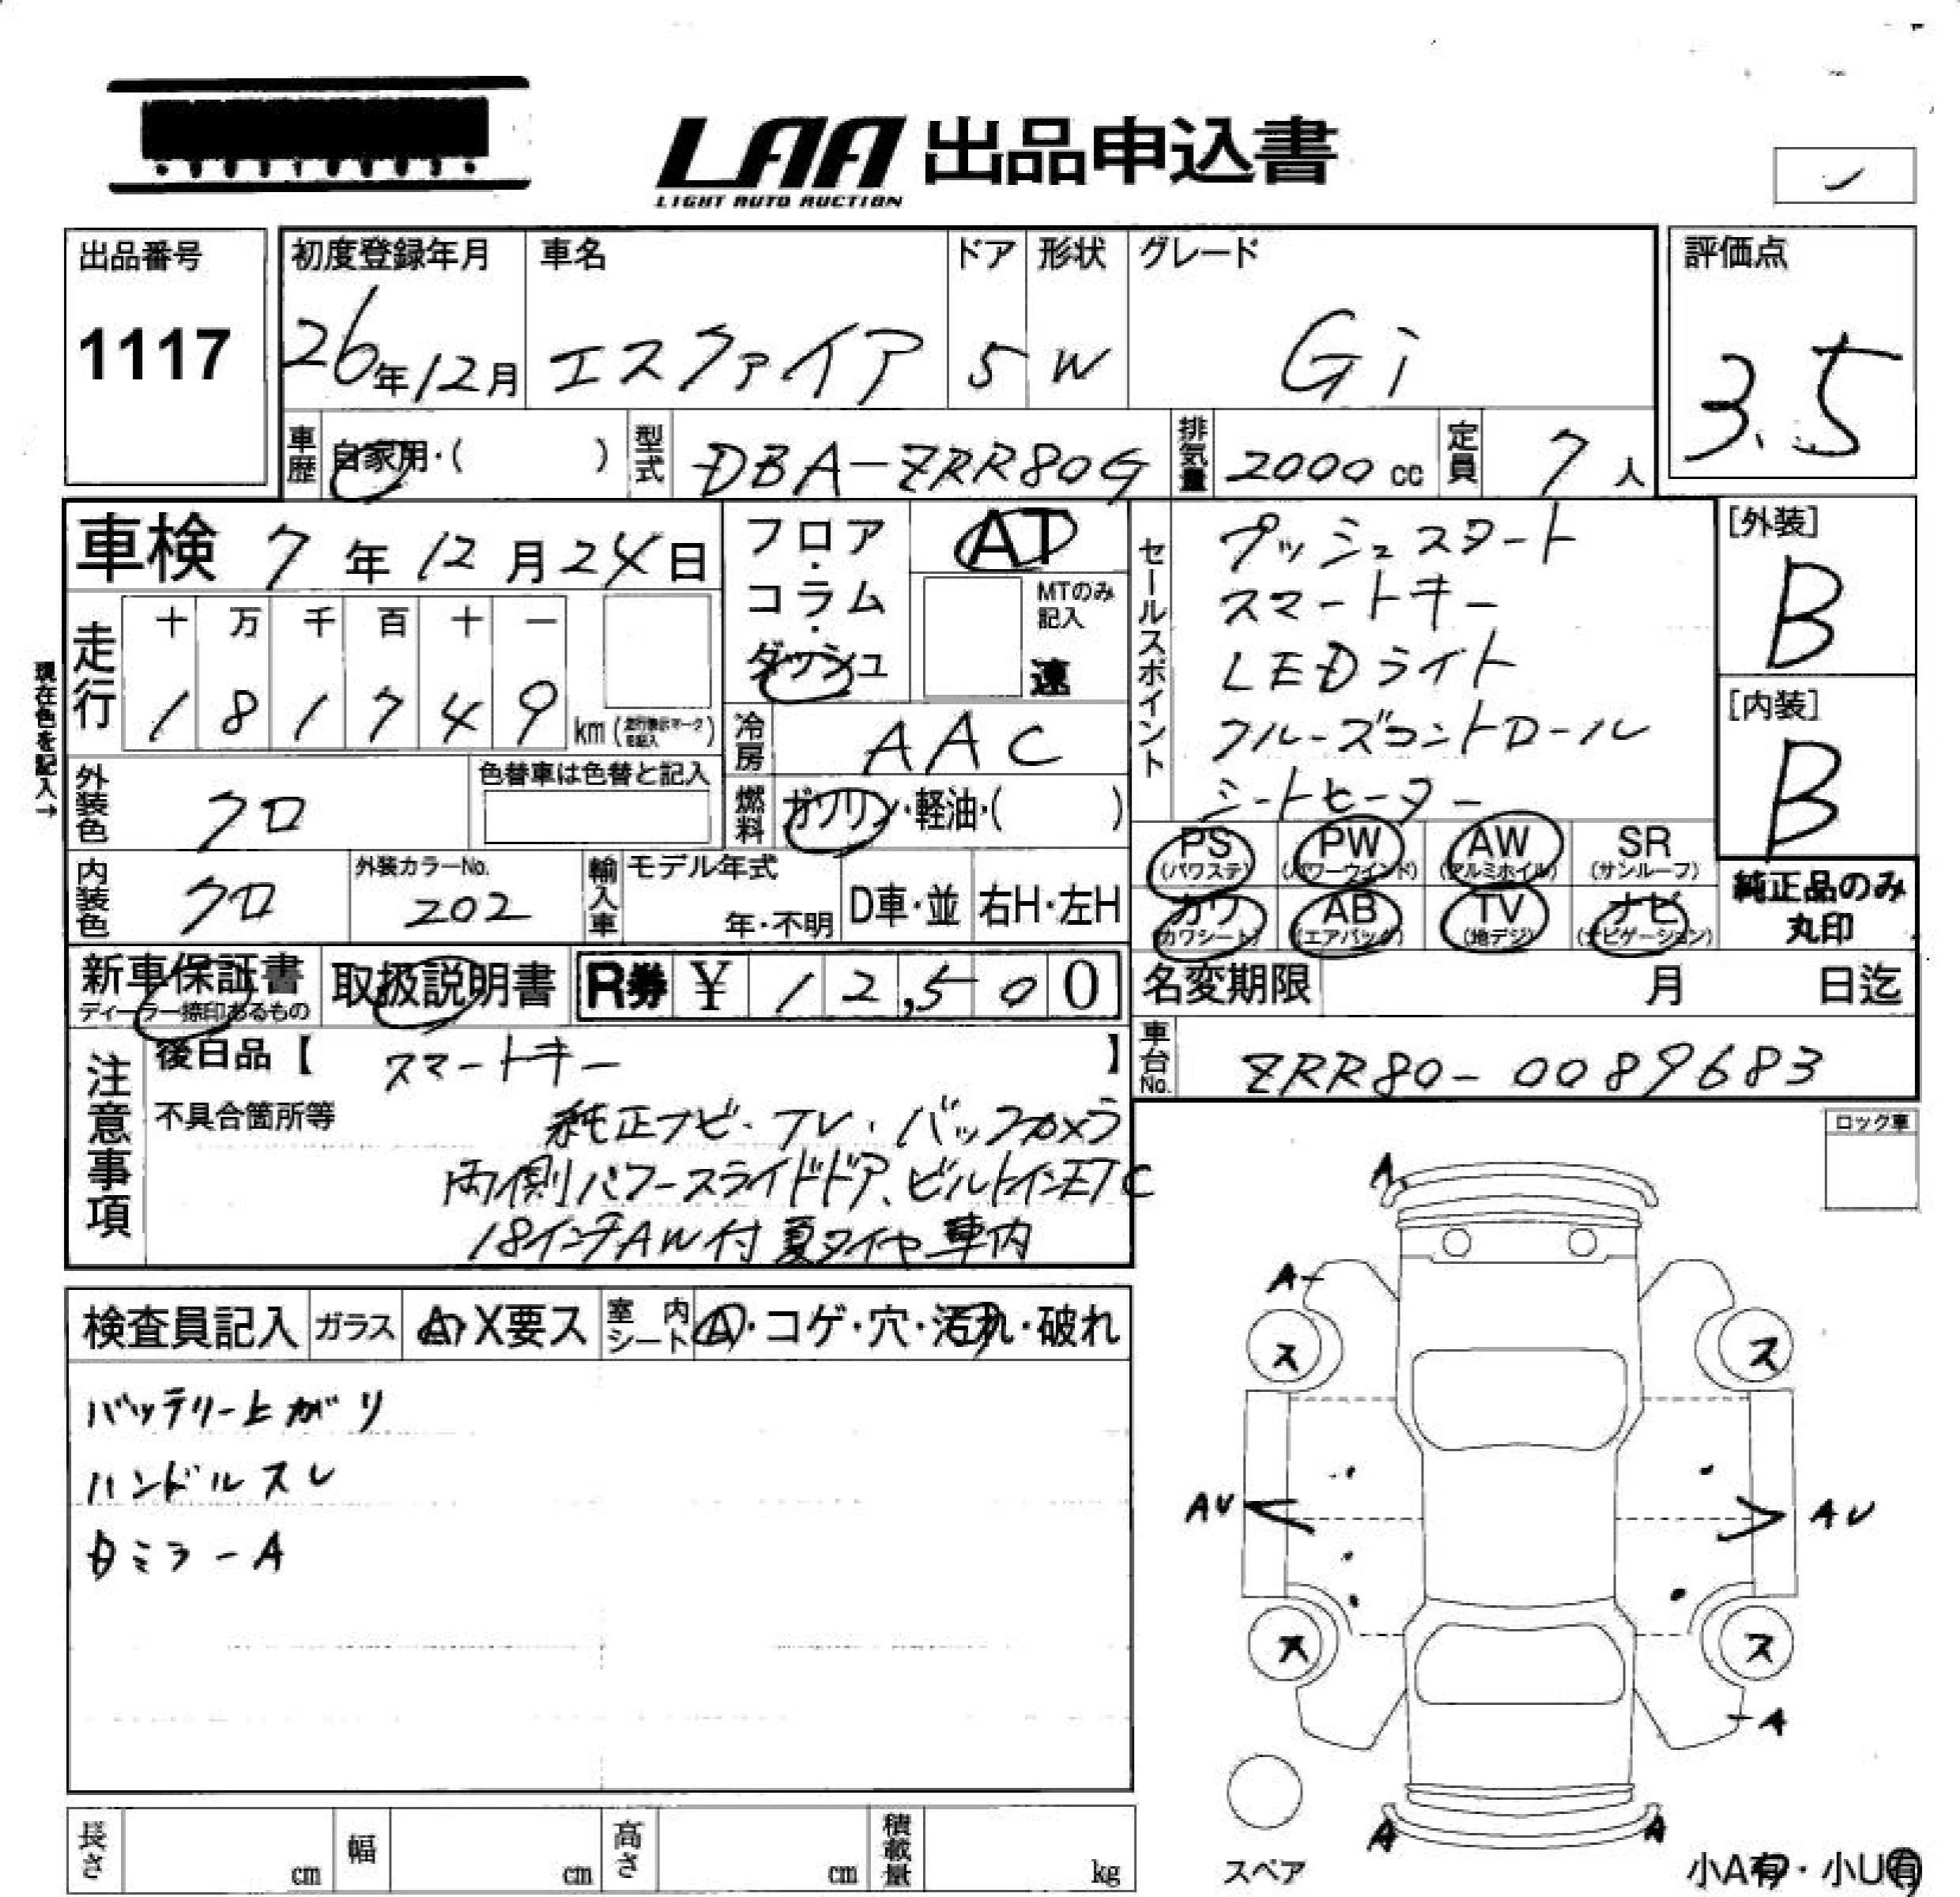 LAA 出品申込書
LIGHT AUTO AUCTION
出品番号
1117
初度登録年月
26年12月
車名
エスファイア
ドア
5
形状
W
グレード
Gi
評価点
3.5
車歴
自家用・( )
型式
DBA-ZRR80G
排気量
2000 cc
定員
7 人
車検 7年12月24日
フロア・コラム・ダッシュ
AT
MTのみ記入
速
セールスポイント
プッシュスタート
スマートキー
LEDライト
クルーズコントロール
シートヒーター
[外装]
B
[内装]
B
現在色を記入→
走行
十 万 千 百 十 一
1 8 1 7 4 9 km
冷房
AAC
外装色
クロ
色替車は色替と記入
燃料
ガソリン・軽油・( )
PS (パワステ)
PW (パワーウインド)
AW (アルミホイル)
SR (サンルーフ)
内装色
クロ
外装カラーNo.
202
輸入車
モデル年式
年・不明
D車・並
右H・左H
カワ (カワシート)
AB (エアバック)
TV (地デジ)
ナビ (ナビゲーション)
純正品のみ
丸印
新車保証書
ディーラー捺印あるもの
取扱説明書
R券 ¥ 12,500
名変期限 月 日迄
車台No.
ZRR80-0089683
注意事項
後日品【 スマートキー 】
不具合箇所等
純正ナビ・TV・バックカメラ
両側パワースライドドア、ビルトインETC
18インチAW付 夏タイヤ 車内
ロック車
検査員記入
ガラス
A・X要ス
室内シート
A・コゲ・穴・汚れ・破れ
バッテリー上がり
ハンドルスレ
ミラーA
A
A
ス
ス
AU
AU
ス
ス
A
A
A
スペア
小A有・小U有
長さ cm
幅 cm
高さ cm
積載量 kg